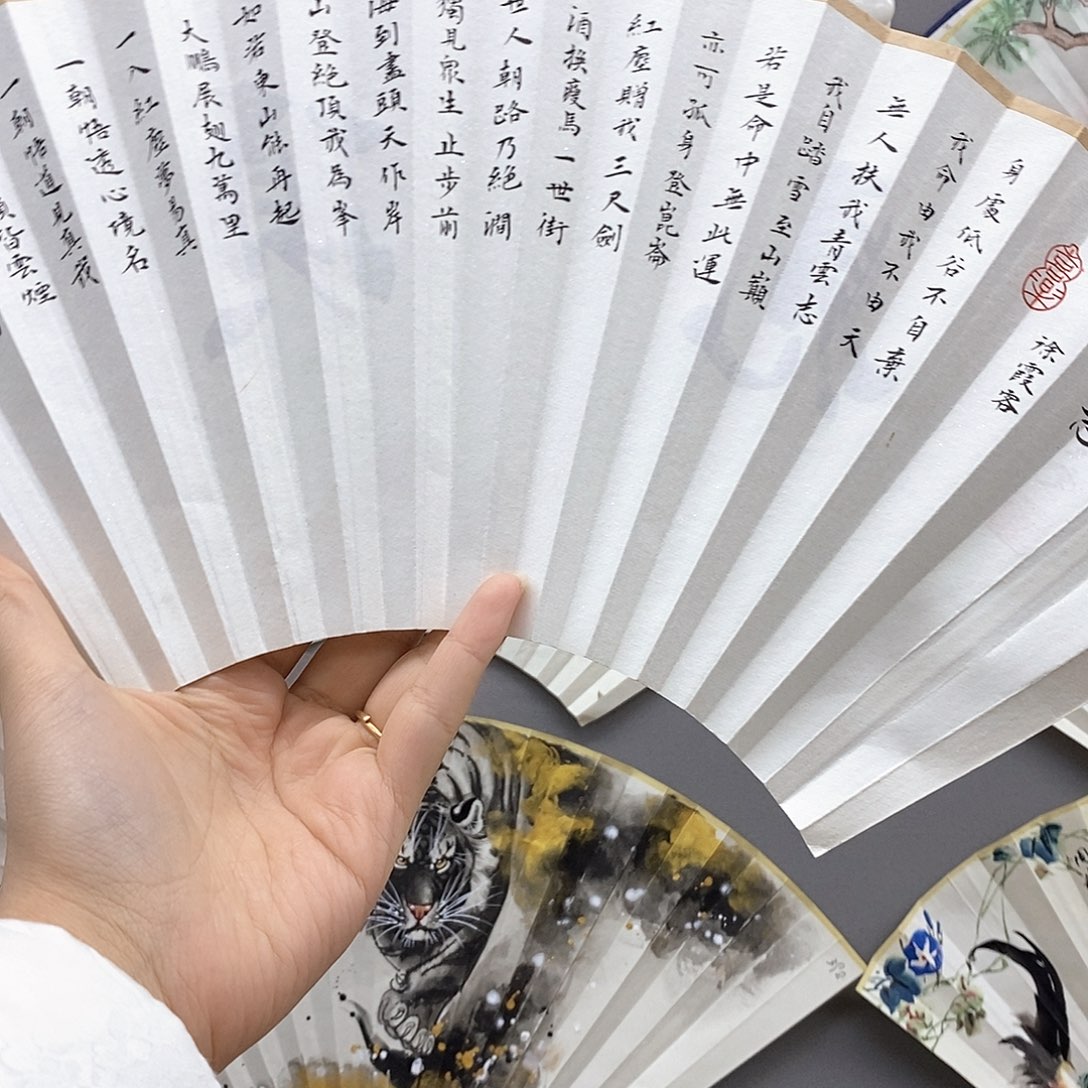 徐霞客
身處低谷不自棄
我命由我不由天
無人扶我青雲志
我自踏雪至山巔
若是命中無此運
亦可孤身登崑崙
紅塵贈我三尺劍
酒換瘦馬一世街
世人朝路乃絕澗
獨見衆生止步前
海到盡頭天作岸
山登絕頂我為峯
如若東山能再起
大鵬展翅九萬里
一入紅塵夢易真
一朝悟透心境名
一朝悟道見真我
皆雲煙